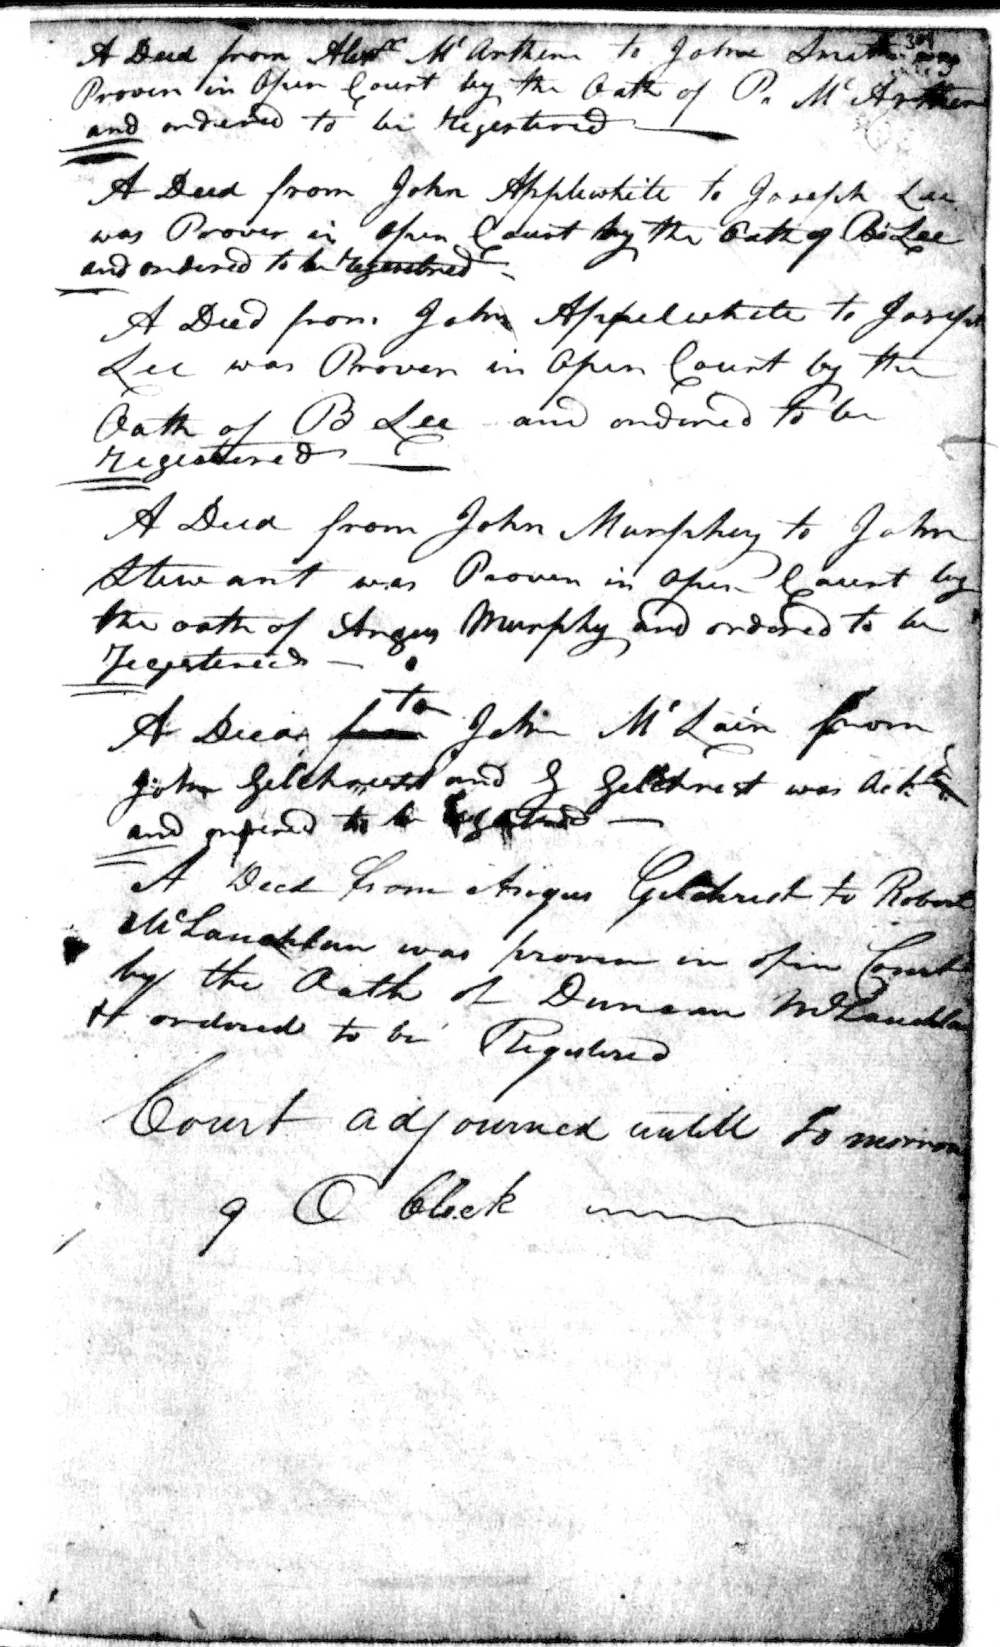 A Deed from Alexr Mc Arthur to John Smith
Proven in Open Court by the Oath of P. Mc Arthur
and ordered to be registered
A Deed from John Applewhite to Joseph Lee
was Proven in open Court by the Oath of B Lee
and ordered to be registered
A Deed from John Appelwhite to Joseph
Lee was Proven in Open Court by the
Oath of B Lee and ordered to be
registered
A Deed from John Murphey to John
Stewart was Proven in Open Court by
the oath of Angus Murphy and ordered to be
registered
to
A Deed from John Mc Lain from
John Gilchrist and J Gilchrist was Ack
and ordered to be registered
A Deed from Angus Gilchrist to Robert
McLauchlin was proven in open Court
by the Oath of Duncan McLauchlin
& ordered to be Registered
Court adjourned untill to morrow
9 O Clock